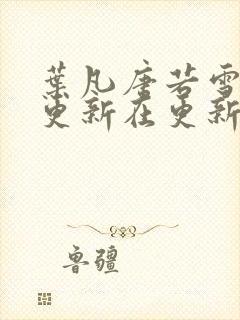 葉凡唐若雪
更新在更新
魯疆